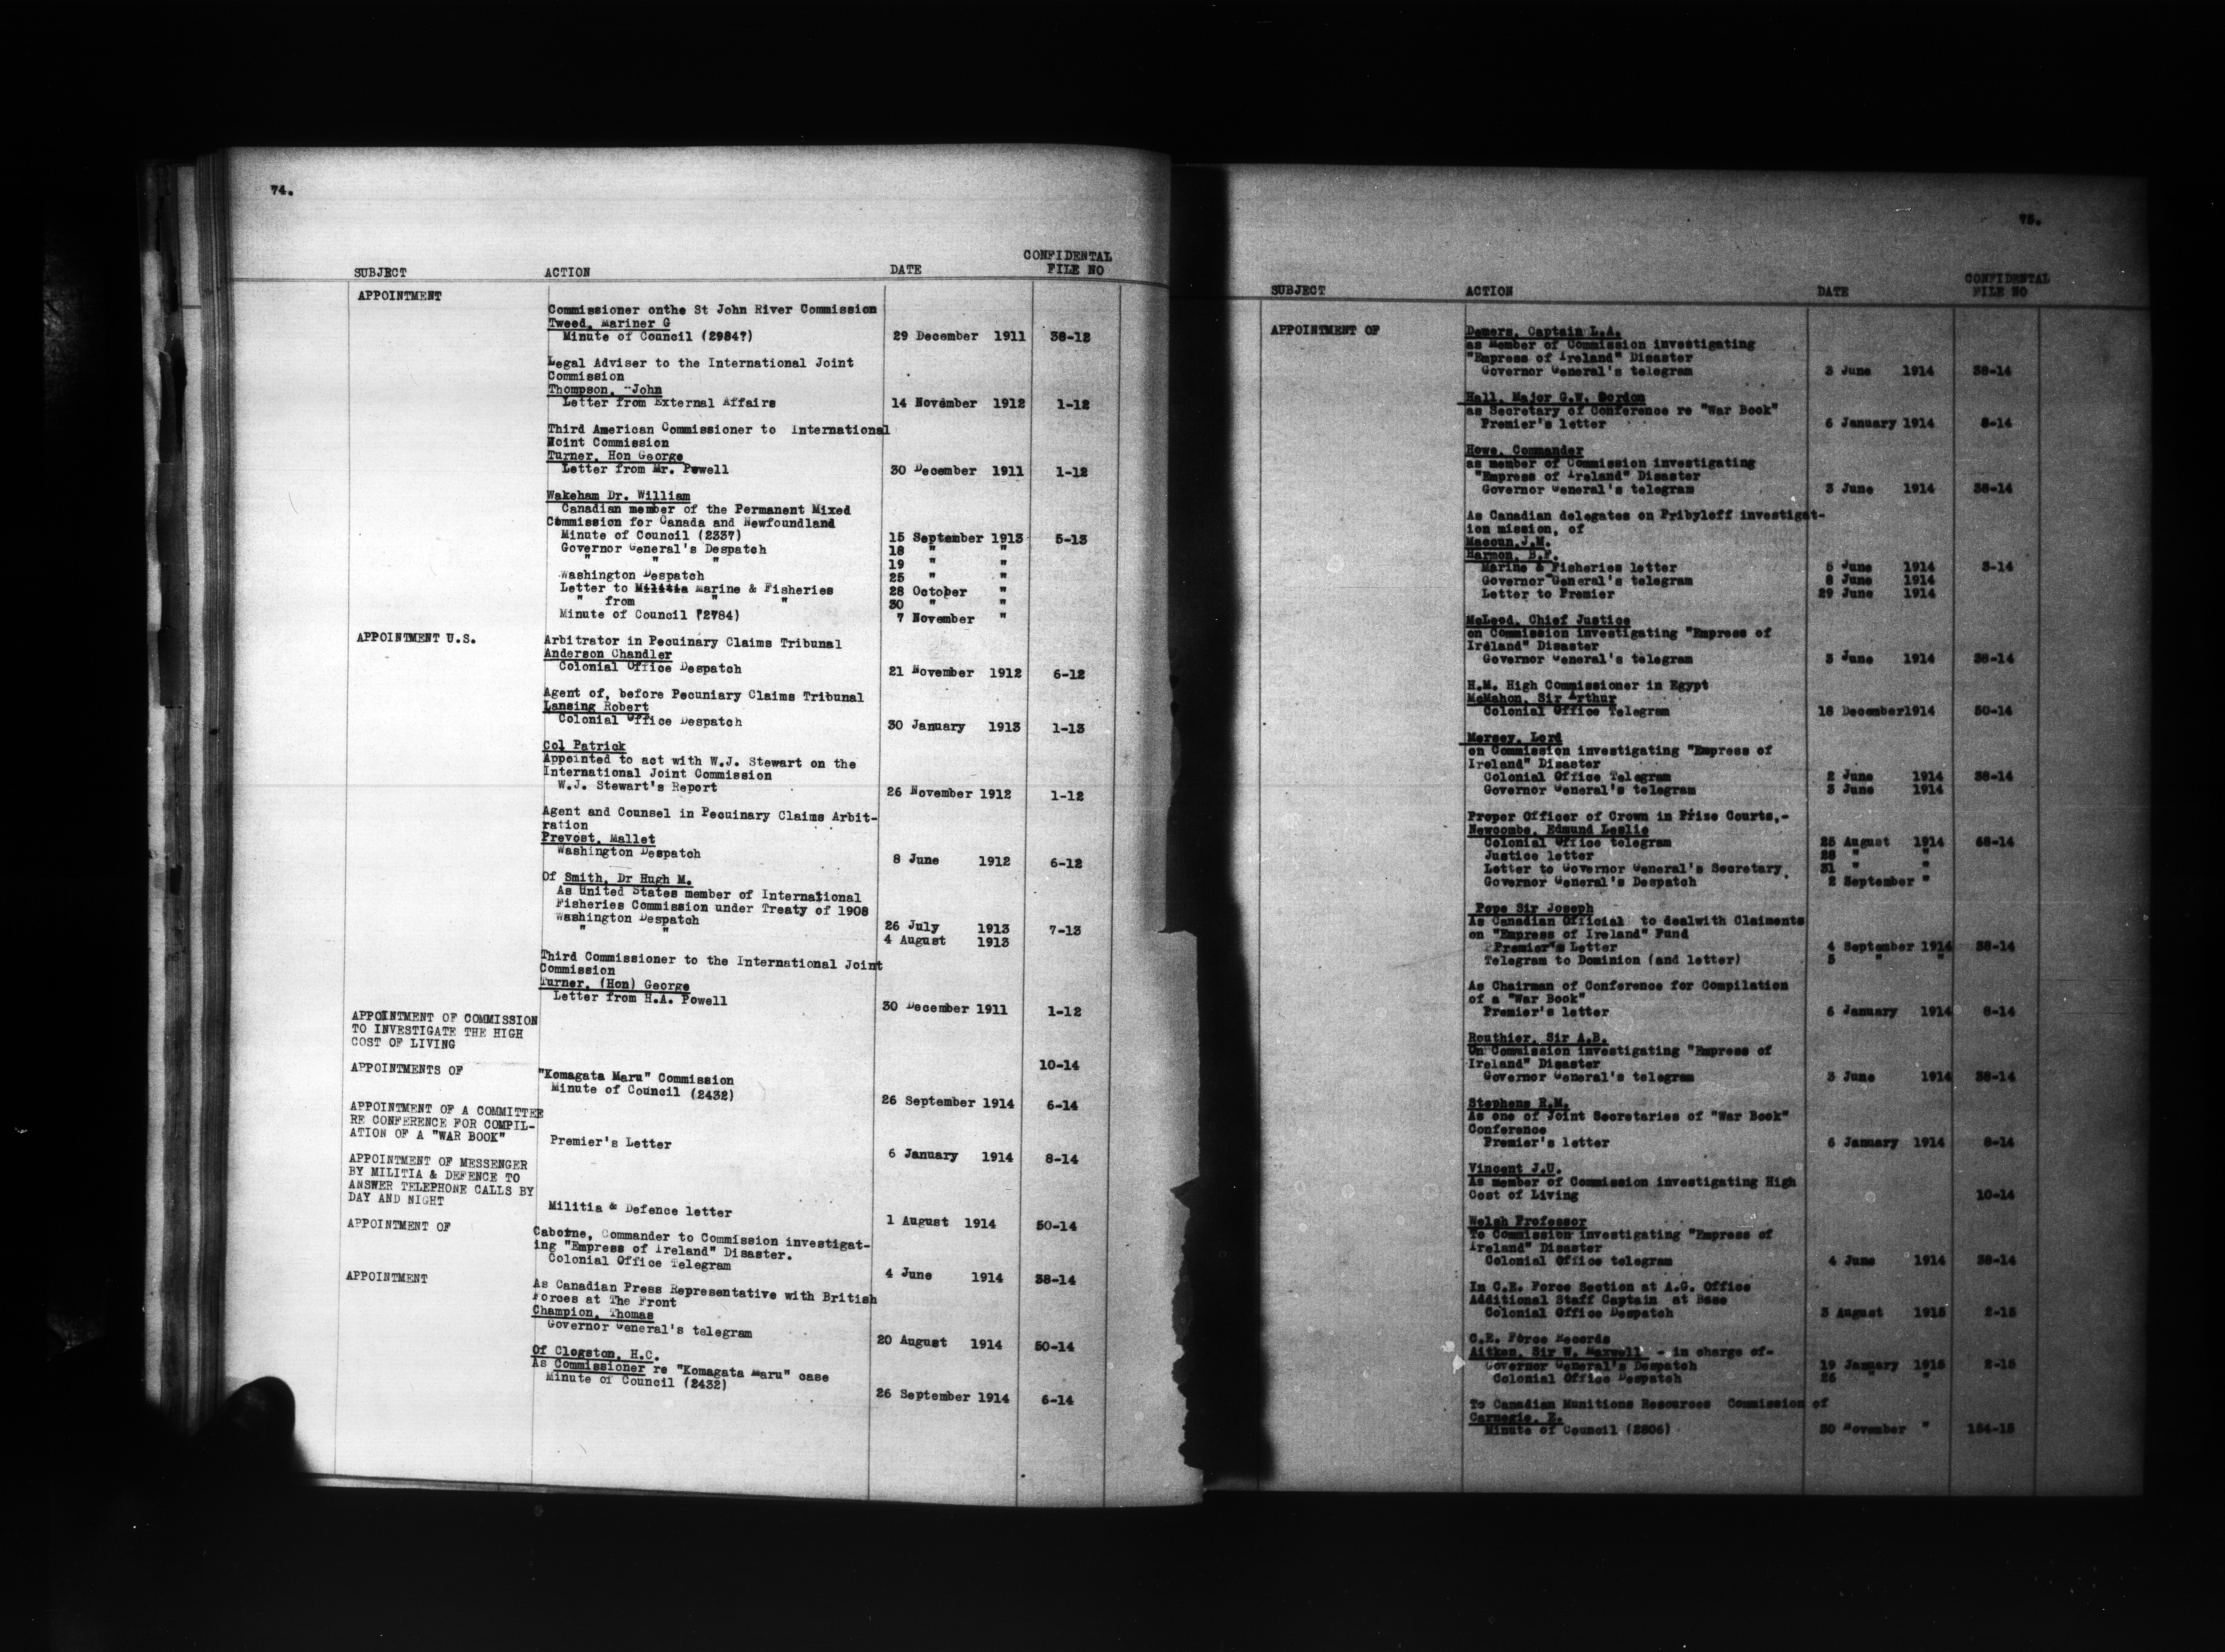 74.
SUBJECT ACTION DATE CONFIDENTAL FILE NO
APPOINTMENT
Commissioner onthe St John River Commission
Tweed, Mariner G
Minute of Council (2984?) 29 December 1911 38-12
Legal Adviser to the International Joint
Commission
Thompson, John
Letter from External Affairs 14 November 1912 1-12
Third American Commissioner to International
Joint Commission
Turner, Hon George
Letter from Mr. Powell 30 December 1911 1-12
Wakeham Dr. William
Canadian member of the Permanent Mixed
Commission for Canada and Newfoundland
Minute of Council (2337) 15 September 1913 5-13
Governor General's Despatch 18 " "
" " " 19 " "
Washington Despatch 25 " "
Letter to Militia Marine & Fisheries 28 October "
" from " " 30 " "
Minute of Council (2784) 7 November "
APPOINTMENT U.S. Arbitrator in Pecuinary Claims Tribunal
Anderson Chandler
Colonial Office Despatch 21 November 1912 6-12
Agent of, before Pecuniary Claims Tribunal
Lansing Robert
Colonial Office Despatch 30 January 1913 1-13
Col Patrick
Appointed to act with W.J. Stewart on the
International Joint Commission
W.J. Stewart's Report 26 November 1912 1-12
Agent and Counsel in Pecuinary Claims Arbit-
ration
Prevost, Mallet
Washington Despatch 8 June 1912 6-12
Of Smith, Dr Hugh M.
As United States member of International
Fisheries Commission under Treaty of 1908
Washington Despatch 26 July 1913 7-13
" " 4 August 1913
Third Commissioner to the International Joint
Commission
Turner, (Hon) George
Letter from H.A. Powell 30 December 1911 1-12
APPOINTMENT OF COMMISSION
TO INVESTIGATE THE HIGH
COST OF LIVING
10-14
APPOINTMENTS OF "Komagata Maru" Commission
Minute of Council (2432) 26 September 1914 6-14
APPOINTMENT OF A COMMITTEE
RE CONFERENCE FOR COMPIL-
ATION OF A "WAR BOOK" Premier's Letter 6 January 1914 8-14
APPOINTMENT OF MESSENGER
BY MILITIA & DEFENCE TO
ANSWER TELEPHONE CALLS BY
DAY AND NIGHT Militia & Defence letter 1 August 1914 50-14
APPOINTMENT OF Caborne, Commander to Commission investigat-
ing "Empress of Ireland" Disaster.
Colonial Office Telegram 4 June 1914 38-14
APPOINTMENT As Canadian Press Representative with British
Forces at The Front
Champion, Thomas
Governor General's telegram 20 August 1914 50-14
Of Clogston, H.C.
As Commissioner re "Komagata Maru" case
Minute of Council (2432) 26 September 1914 6-14
75.
SUBJECT ACTION DATE CONFIDENTAL FILE NO
APPOINTMENT OF Demers, Captain L.A.
as Member of Commission investigating
"Empress of Ireland" Disaster
Governor General's telegram 3 June 1914 38-14
Hall, Major G.W. Gordon
as Secretary of Conference re "War Book"
Premier's letter 6 January 1914 8-14
Howe, Commander
as member of Commission investigating
"Empress of Ireland" Disaster
Governor General's telegram 3 June 1914 38-14
As Canadian delegates on Pribyloff investigat-
ion mission, of
Macoun, J.M.
Harmon, B.F.
Marine & Fisheries letter 5 June 1914 3-14
Governor General's telegram 8 June 1914
Letter to Premier 29 June 1914
McLeod, Chief Justice
on Commission investigating "Empress of
Ireland" Disaster
Governor General's telegram 3 June 1914 38-14
H.M. High Commissioner in Egypt
McMahon, Sir Arthur
Colonial Office Telegram 18 December1914 50-14
Mersey, Lord
on Commission investigating "Empress of
Ireland" Disaster
Colonial Office Telegram 2 June 1914 38-14
Governor General's telegram 3 June 1914
Proper Officer of Crown in Prize Courts,-
Newcombe, Edmund Leslie
Colonial Office telegram 25 August 1914 68-14
Justice letter 28 " "
Letter to Governor General's Secretary 31 " "
Governor General's Despatch 2 September "
Pope Sir Joseph
As Canadian Official to dealwith Claiments
on "Empress of Ireland" Fund
Premier's Letter 4 September 1914 38-14
Telegram to Dominion (and letter) 5 " "
As Chairman of Conference for Compilation
of a "War Book"
Premier's letter 6 January 1914 8-14
Routhier, Sir A.B.
On Commission investigating "Empress of
Ireland" Disaster
Governor General's telegram 3 June 1914 38-14
Stephens R.M.
As one of Joint Secretaries of "War Book"
Conference
Premier's letter 6 January 1914 8-14
Vincent J.U.
As member of Commission investigating High
Cost of Living 10-14
Welsh Professor
To Commission investigating "Empress of
Ireland" Disaster
Colonial Office telegram 4 June 1914 38-14
In C.E. Force Section at A.G. Office
Additional Staff Captain at Base
Colonial Office Despatch 3 August 1915 2-15
C.E. Force Records
Aitken, Sir W. Maxwell - in charge of-
Governor General's Despatch 19 January 1915 2-15
Colonial Office Despatch 26 " "
To Canadian Munitions Resources Commission of
Carnegie, E.
Minute of Council (2806) 30 November " 154-15